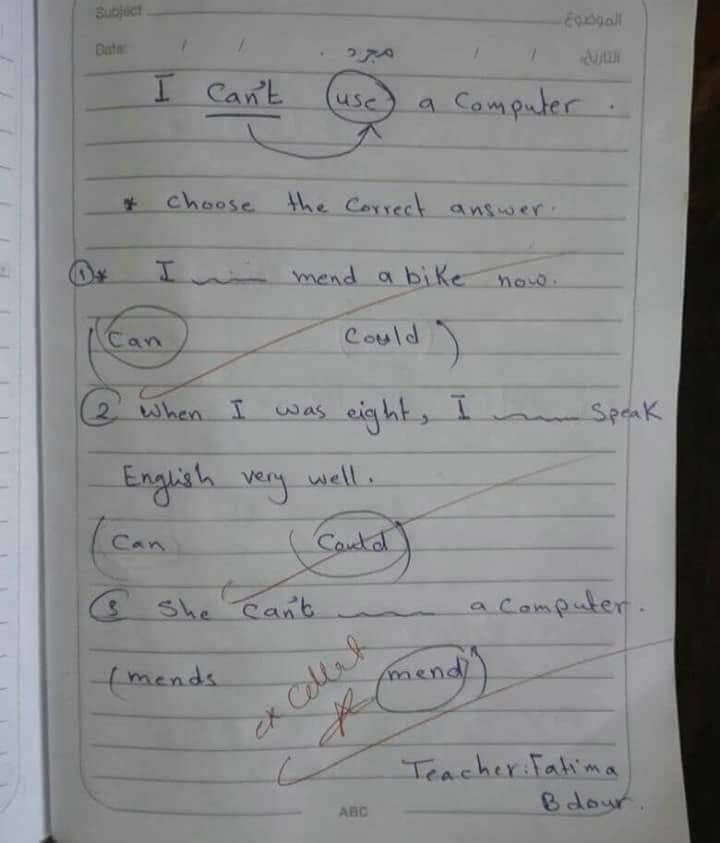 Subject الموضوع
Date: / / مجرد / / التاريخ:
I Can't use a Computer.
* choose the correct answer.
1* I ___ mend a bike now.
(Can Could)
2 When I was eight, I ___ Speak
English very well.
(Can (Could)
3 She can't ___ a computer.
(mends mend)
excellent
Teacher: Fatima
Bdour.
ABC